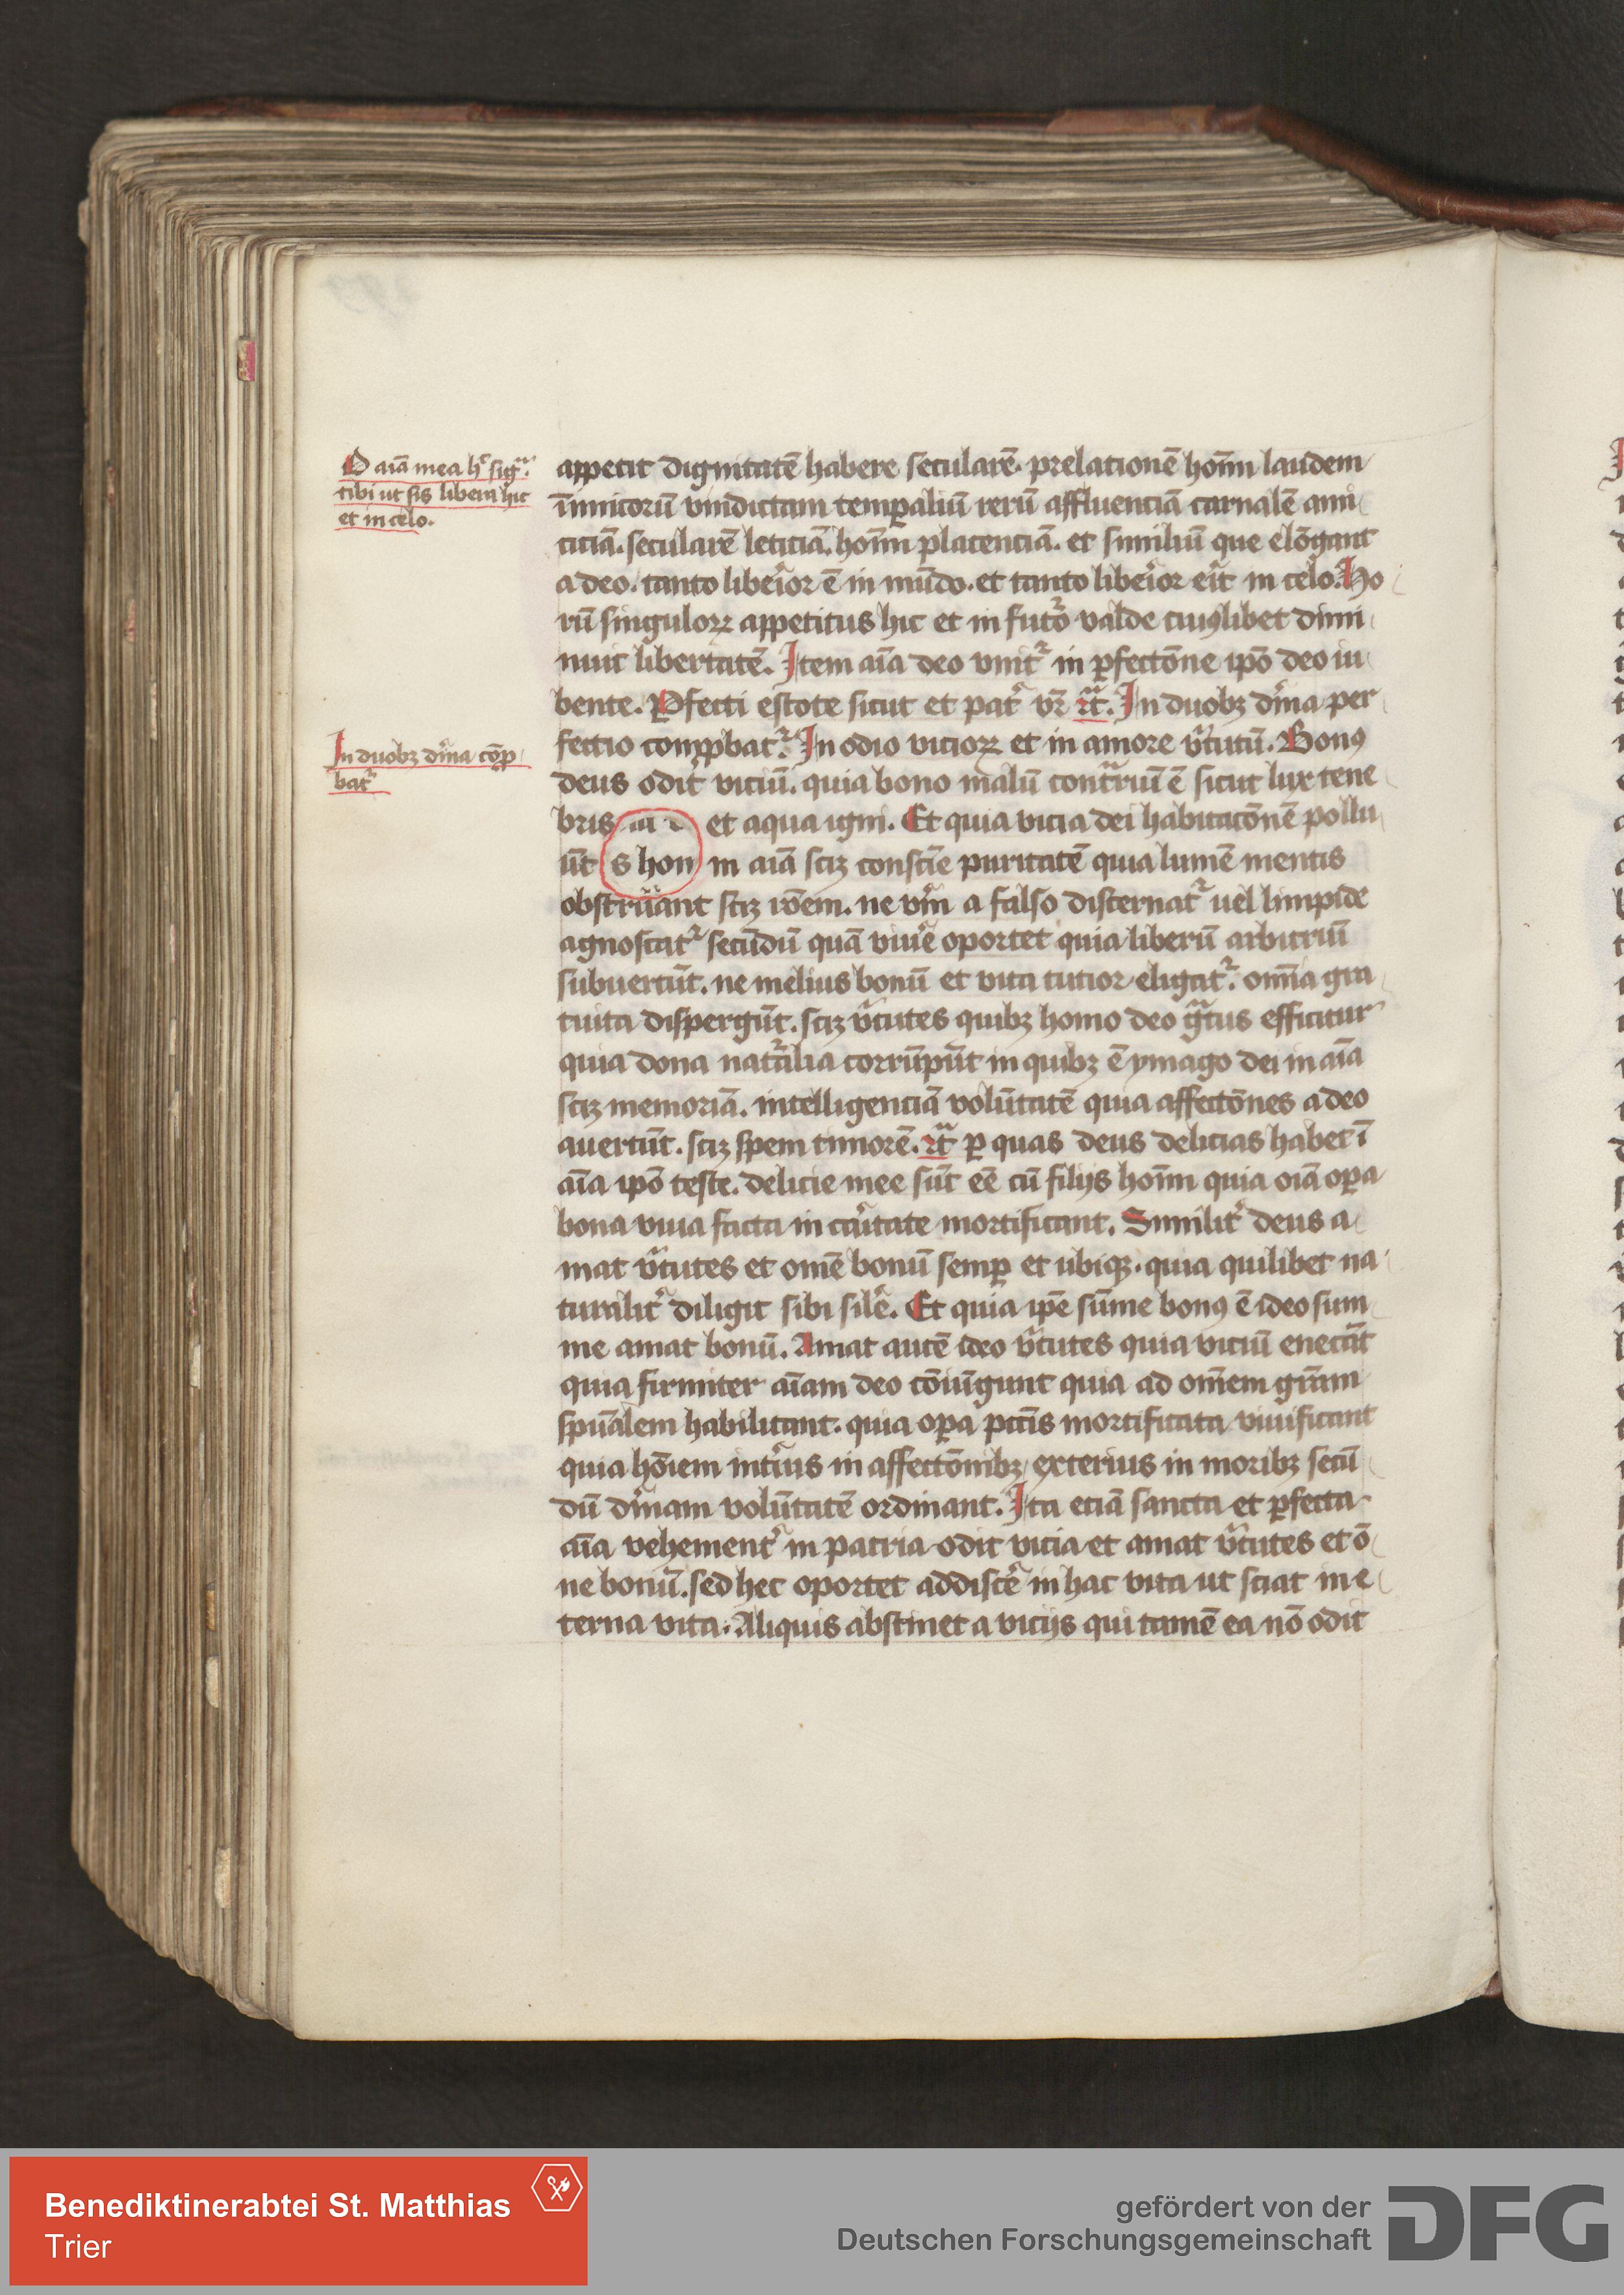 O aīa mea hͨ sigᷓ.
tibi ut sis libera hic
et in celo.
appetit dignitatē habere secularē. prelationē hoīm laudem
īimicorū vindictam temꝑaliū rerū affluenciā carnalē ami
ticiā. secularē leticiā. hoīm placenciā. et similiū que elōgant
a deo. tanto liberior ē in mūdo. et tanto liberior erit in celo. Ho
rū singuloꝝ appetitus hic et in futo valde cuiꝰlibet dimi
nuit libertatē. Item aīa deo vnitᷣ in ꝑfectōne ipō deo iu
bente. Ꝑfecti estote sicut et pat vr̄ rͣt. In duobꝫ dīna per
fectio comꝓbatᷣ. In odio vicioꝝ et in amore v̄tutū. Bonꝰ
In duobꝫ dīna cōꝓ
batᷣ
deus odit viciū. quia bono malū contͣriū ē sicut lux tene
bris et aqua igni. Et quia vicia dei habitacōnē pollu
ūt s hon in aīa scꝫ consciē puritatē quia lumē mentis
obstruant scꝫ rōem. ne vm̄ a falso discernatᷣ uel limpide
agnoscatᷣ secūdū quā viuē oportet quia liberū arbitriū
subuertūt. ne melius bonū et vita tutior eligatᷣ. omīa gra
tuita dispergūt. scꝫ v̄tutes quibꝫ homo deo gͣtus efficitur
quia dona natᷣalia corrūpūt in quibꝫ ē ymago dei in aīa
scꝫ memoriā. intelligenciā volūtatē quia affectōnes a deo
auertūt. scꝫ spem timorē. rͣt ꝑ quas deus delicias habet ī
aīa ipō teste. delicie mee sūt eē cū filijs hoīm quia oīa oꝑa
bona viua facta in caritate mortificant. Similit deus a
mat v̄tutes et omē bonū semꝑ et ubiqꝫ. quia quilibet na
turalit diligit sibi silē. Et quia ipē sūme bonꝰ ē ideo sum
me amat bonū. Amat autē ideo v̄tutes quia viciū enecāt
quia firmiter aīam deo cōiūgunt quia ad omēm grām
spūalem habilitant. quia oꝑa pctīs mortificata viuificant
quia hōiem intius in affectōnibꝫ exterius in moribꝫ secū
dū dīnam volūtatē ordinant. Ita etiā sancta et ꝑfecta
aīa vehement in patria odit vicia et amat v̄tutes et ō
ne bonū. sed hec oportet addiscē in hac vita ut sciat in e
terna vita. Aliquis abstinet a vicijs qui tamē ea nō odit
Benediktinerabtei St. Matthias
Trier
gefördert von der
Deutschen Forschungsgemeinschaft
DFG